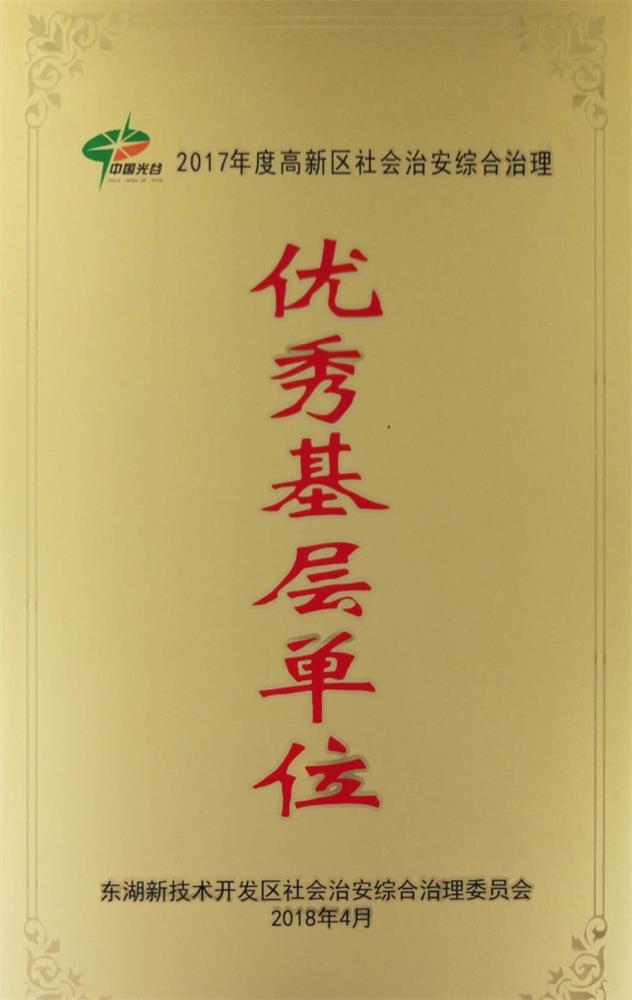 中国光谷
2017年度高新区社会治安综合治理
优秀基层单位
东湖新技术开发区社会治安综合治理委员会
2018年4月